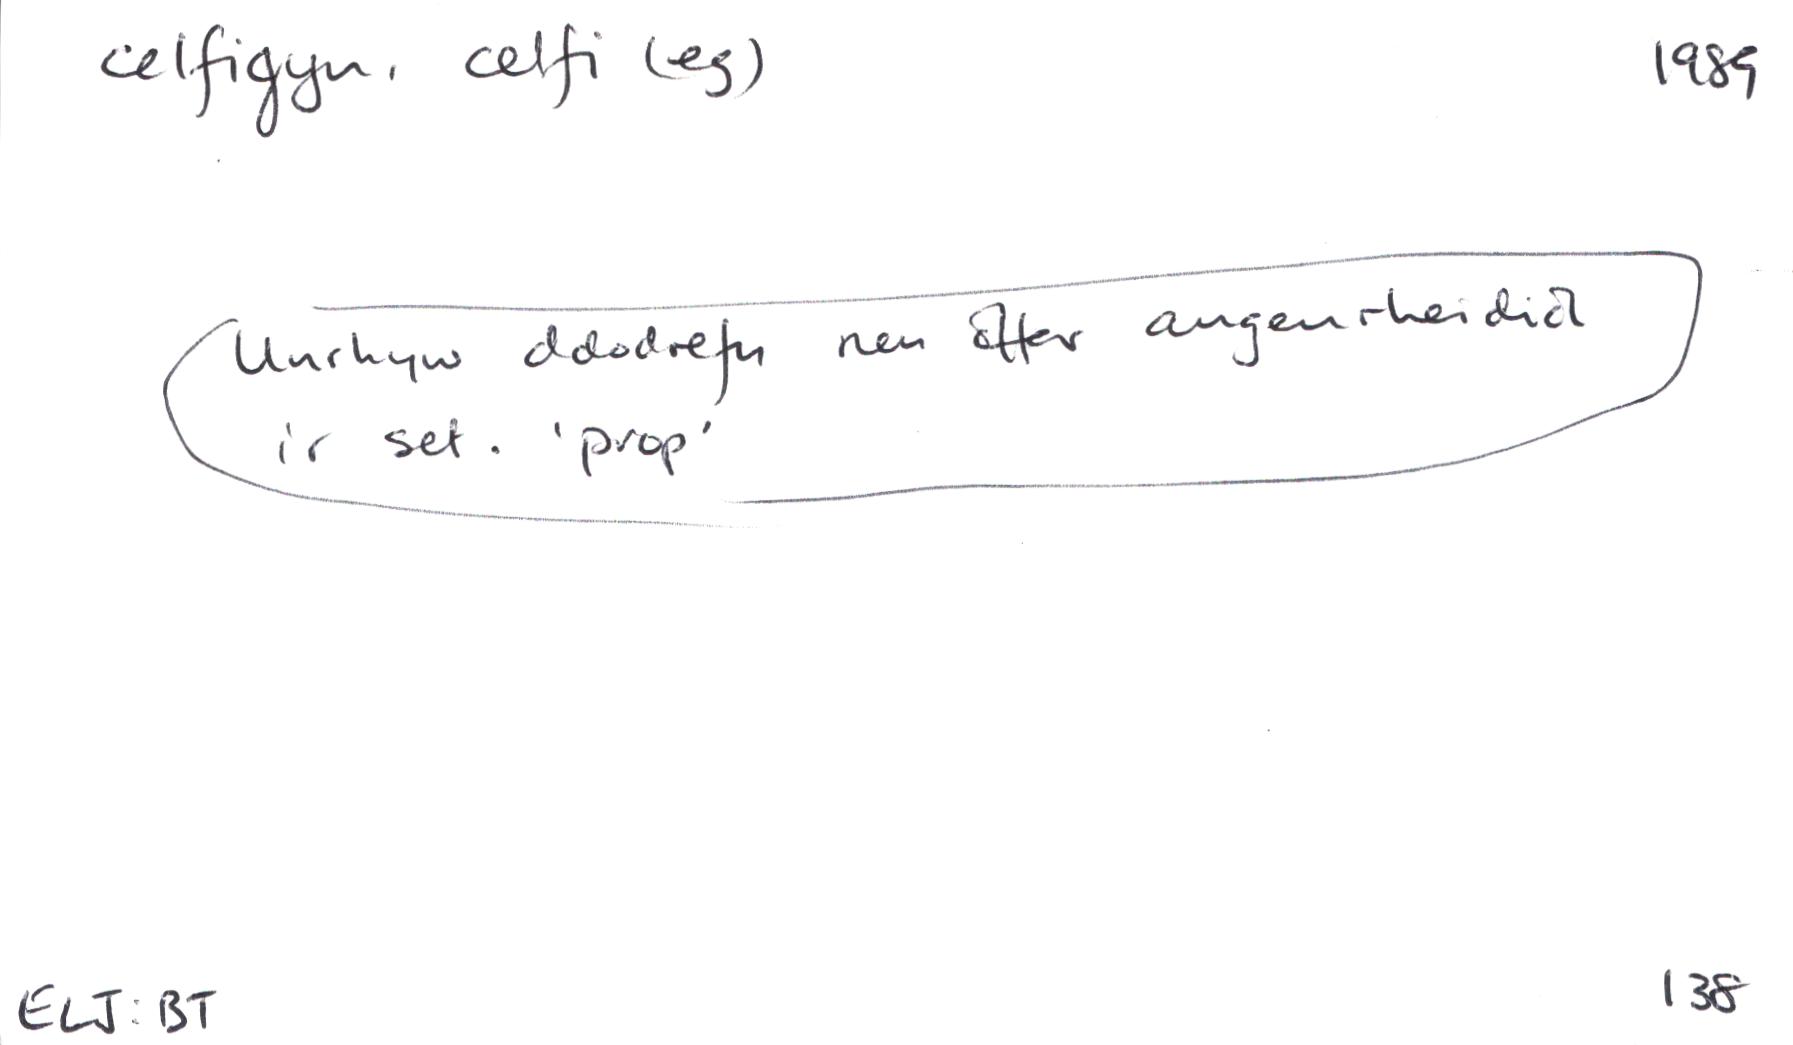 celfigyn, celfi (eg) 1989
Unrhyw ddodrefn neu offer angenrheidiol
i'r set. 'prop'
ELJ: BT 138